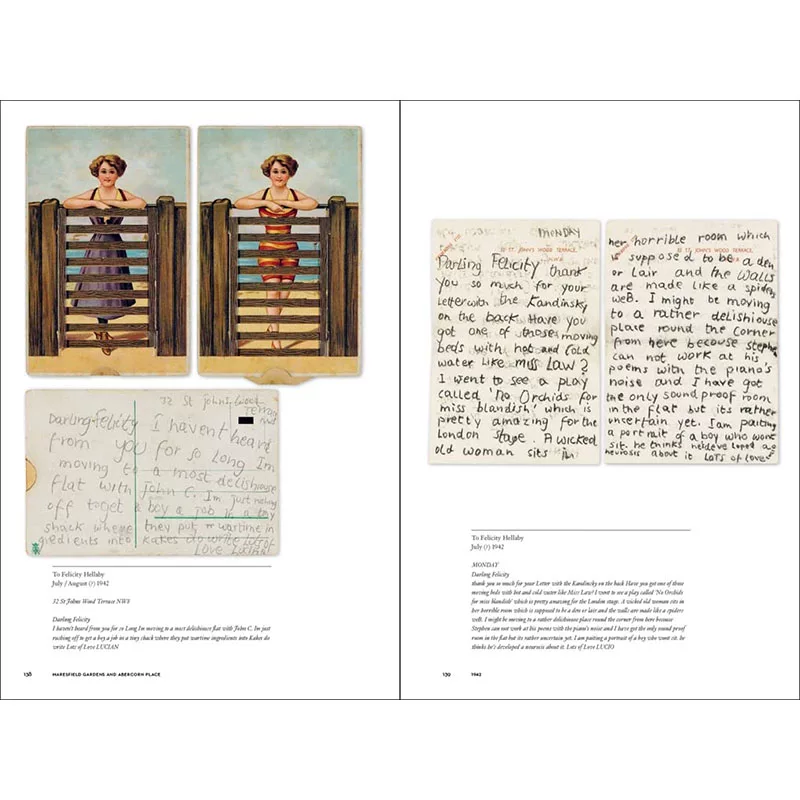 32 St Johns Wood
Terrace
NW8
Darling Felicity I havent heard
from you for so long Im
moving to a most delishiouse
flat with John C. Im just rushing
off to get a boy a job in a tiny
shack where they put wartime in
gredients into Kakes do write Lots of
LOVE LUCIAN
To Felicity Hellaby
July / August (?) 1942
32 St Johns Wood Terrace NW8
Darling Felicity
I haven't heard from you for so Long Im moving to a most delishiouse flat with John C. Im just
rushing off to get a boy a job in a tiny shack where they put wartime ingredients into Kakes do
write Lots of Love LUCIAN
138 MARESFIELD GARDENS AND ABERCORN PLACE
MONDAY
32 ST. JOHN'S WOOD TERRACE,
N.W.8.
Darling Felicity thank
you so much for your
Letter with the Kandinsky
on the back Have you
got one of those moving
beds with hot and cold
water like miss Law?
I went to see a play
called 'No Orchids for
miss blandish' which is
pretty amazing for the
London stage. A wicked
old woman sits in
her horrible room which
32 ST. JOHN'S WOOD TERRACE,
is supposed to be a den
or lair and the walls
are made like a spiders
web. I might be moving
to a rather delishiouse
place round the corner
from here becouse stephen
can not work at his
poems with the piano's
noise and I have got
the only sound proof room
in the flat but its rather
uncertain yet. I am paiting
a portrait of a boy who wont
sit. he thinks he's developed a
neurosis about it LOTS of love
To Felicity Hellaby
July (?) 1942
MONDAY
Darling Felicity
thank you so much for your Letter with the Kandinsky on the back Have you got one of those
moving beds with hot and cold water like Miss Law? I went to see a play called 'No Orchids
for miss blandish' which is pretty amazing for the London stage. A wicked old woman sits in
her horrible room which is supposed to be a den or lair and the walls are made like a spiders
web. I might be moving to a rather delishiouse place round the corner from here because
Stephen can not work at his poems with the piano's noise and I have got the only sound proof
room in the flat but its rather uncertain yet. I am paiting a portrait of a boy who wont sit. he
thinks he's developed a neurosis about it. Lots of Love LUCIO
139 1942